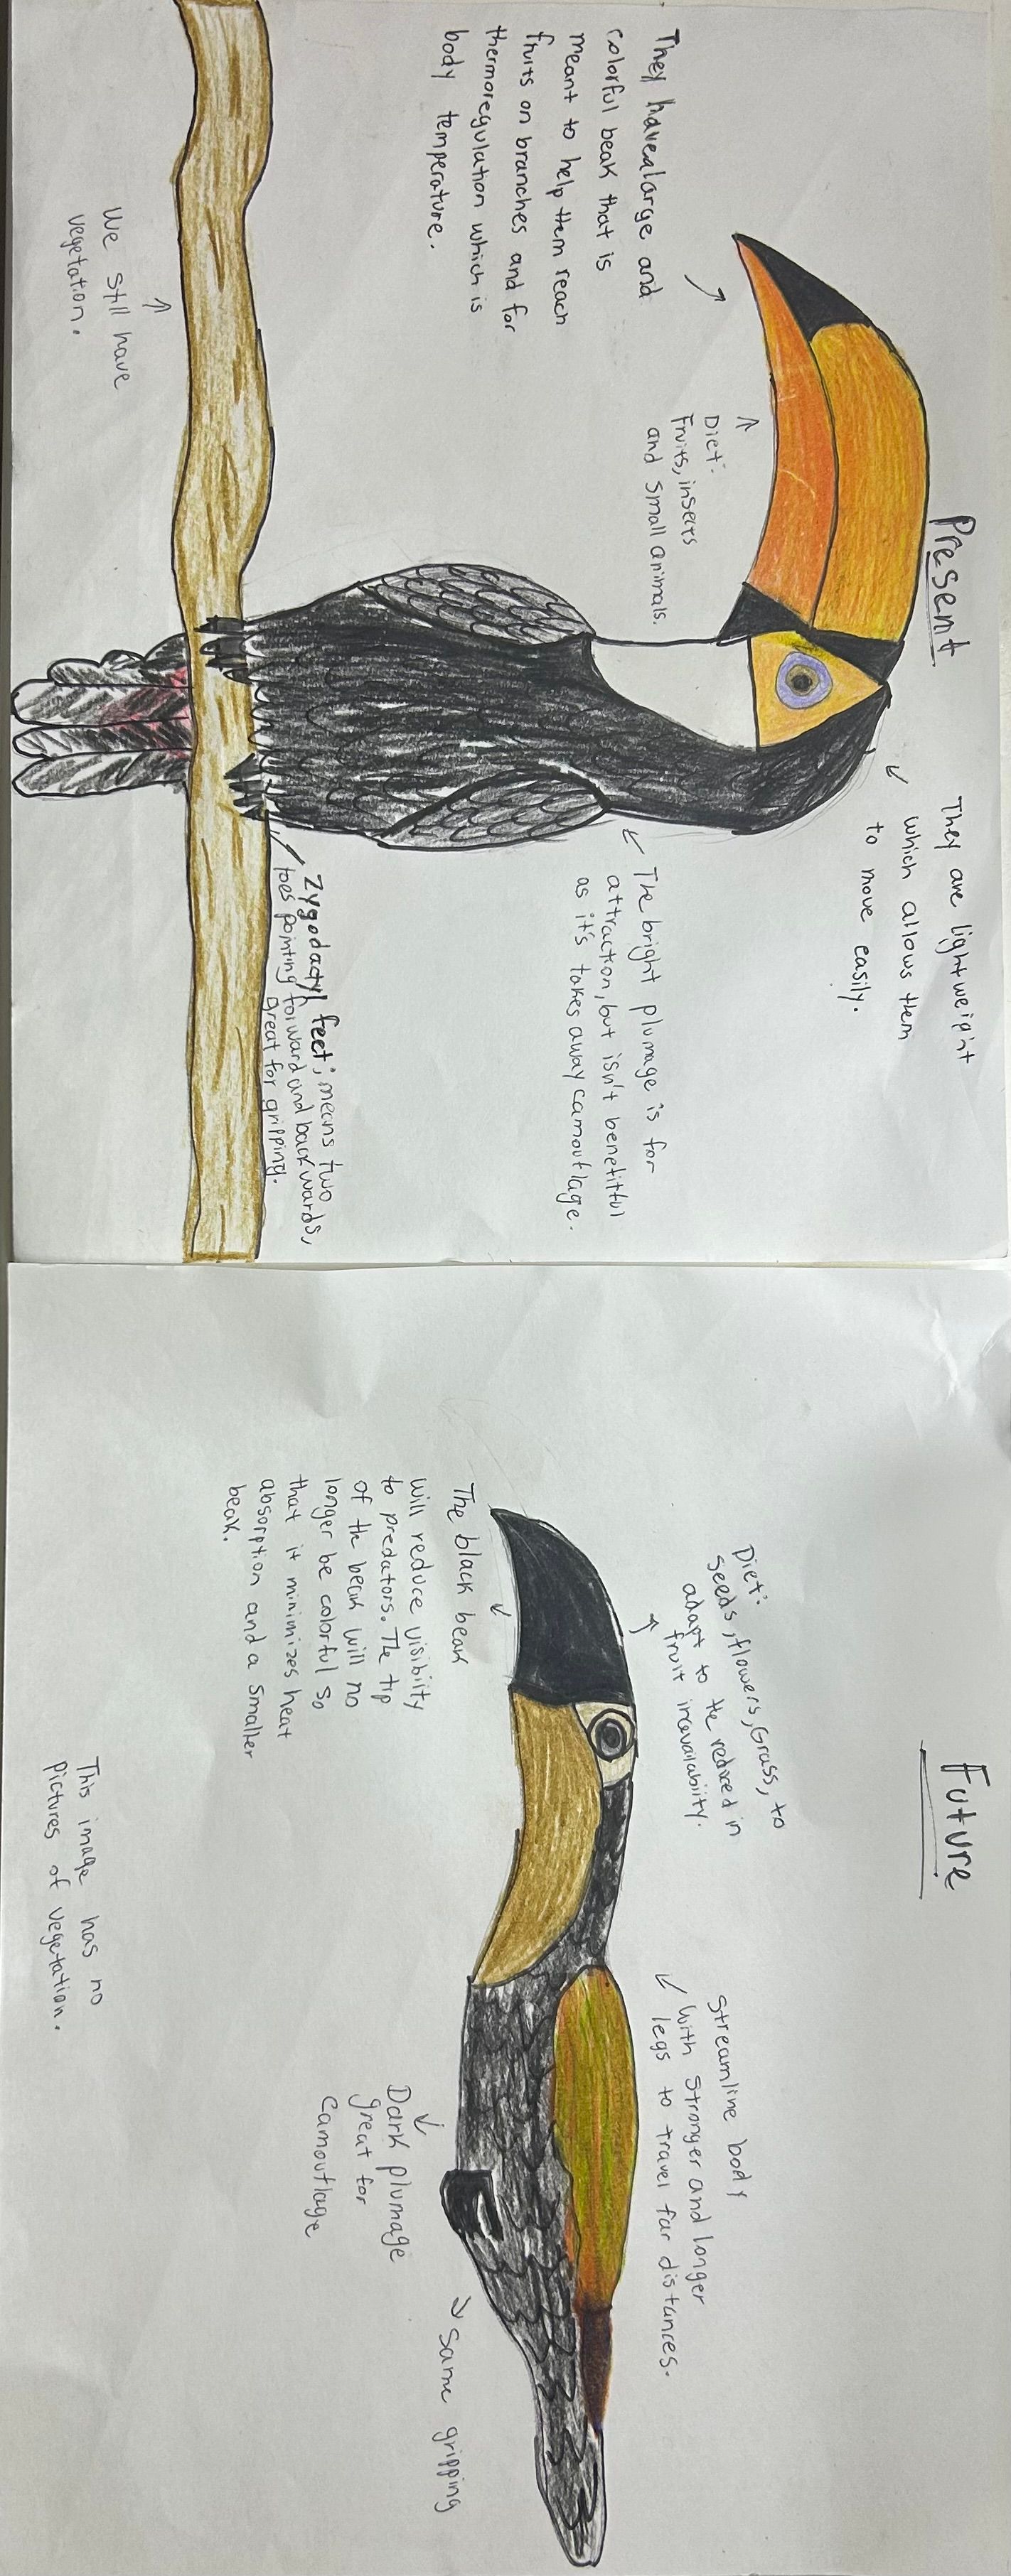 Present
They havealarge and
colorful beak that is
meant to help them reach
fruits on branches and for
thermoregulation which is
body temperature.
Diet:
Fruits, insects
and small animals.
They are lightweight
which allows them
to move easily.
The bright plumage is for
attraction, but isn't benefitful
as it's takes away camouflage.
Zygodactyl feet; means two
toes pointing forward and backwards,
great for gripping.
We still have
vegetation.
Future
Diet:
Seeds, flowers, Grass, to
adapt to the reduced in
fruit inavailability.
The black beak
will reduce visibiity
to predators. The tip
of the beak will no
longer be colorful so
that it minimizes heat
absorption and a smaller
beak.
Streamline body
with stronger and longer
legs to travel far distances.
Dark plumage
great for
camouflage
same gripping
This image has no
pictures of vegetation.